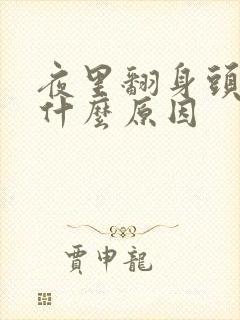 夜里翻身頭
什麼原因
賈申龍